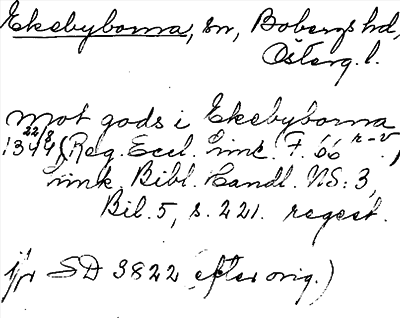 Ekebyborna, sn, Bobergs hd,
Österg. l.
mot gods i Ekebyborna
1344 22/8 (Reg. Eccl. Linc. F. 66 r-v.)
Link. Bibl. Handl. NS: 3,
Bil. 5, s. 221. regest.
jfr SD 3822 efter orig.)